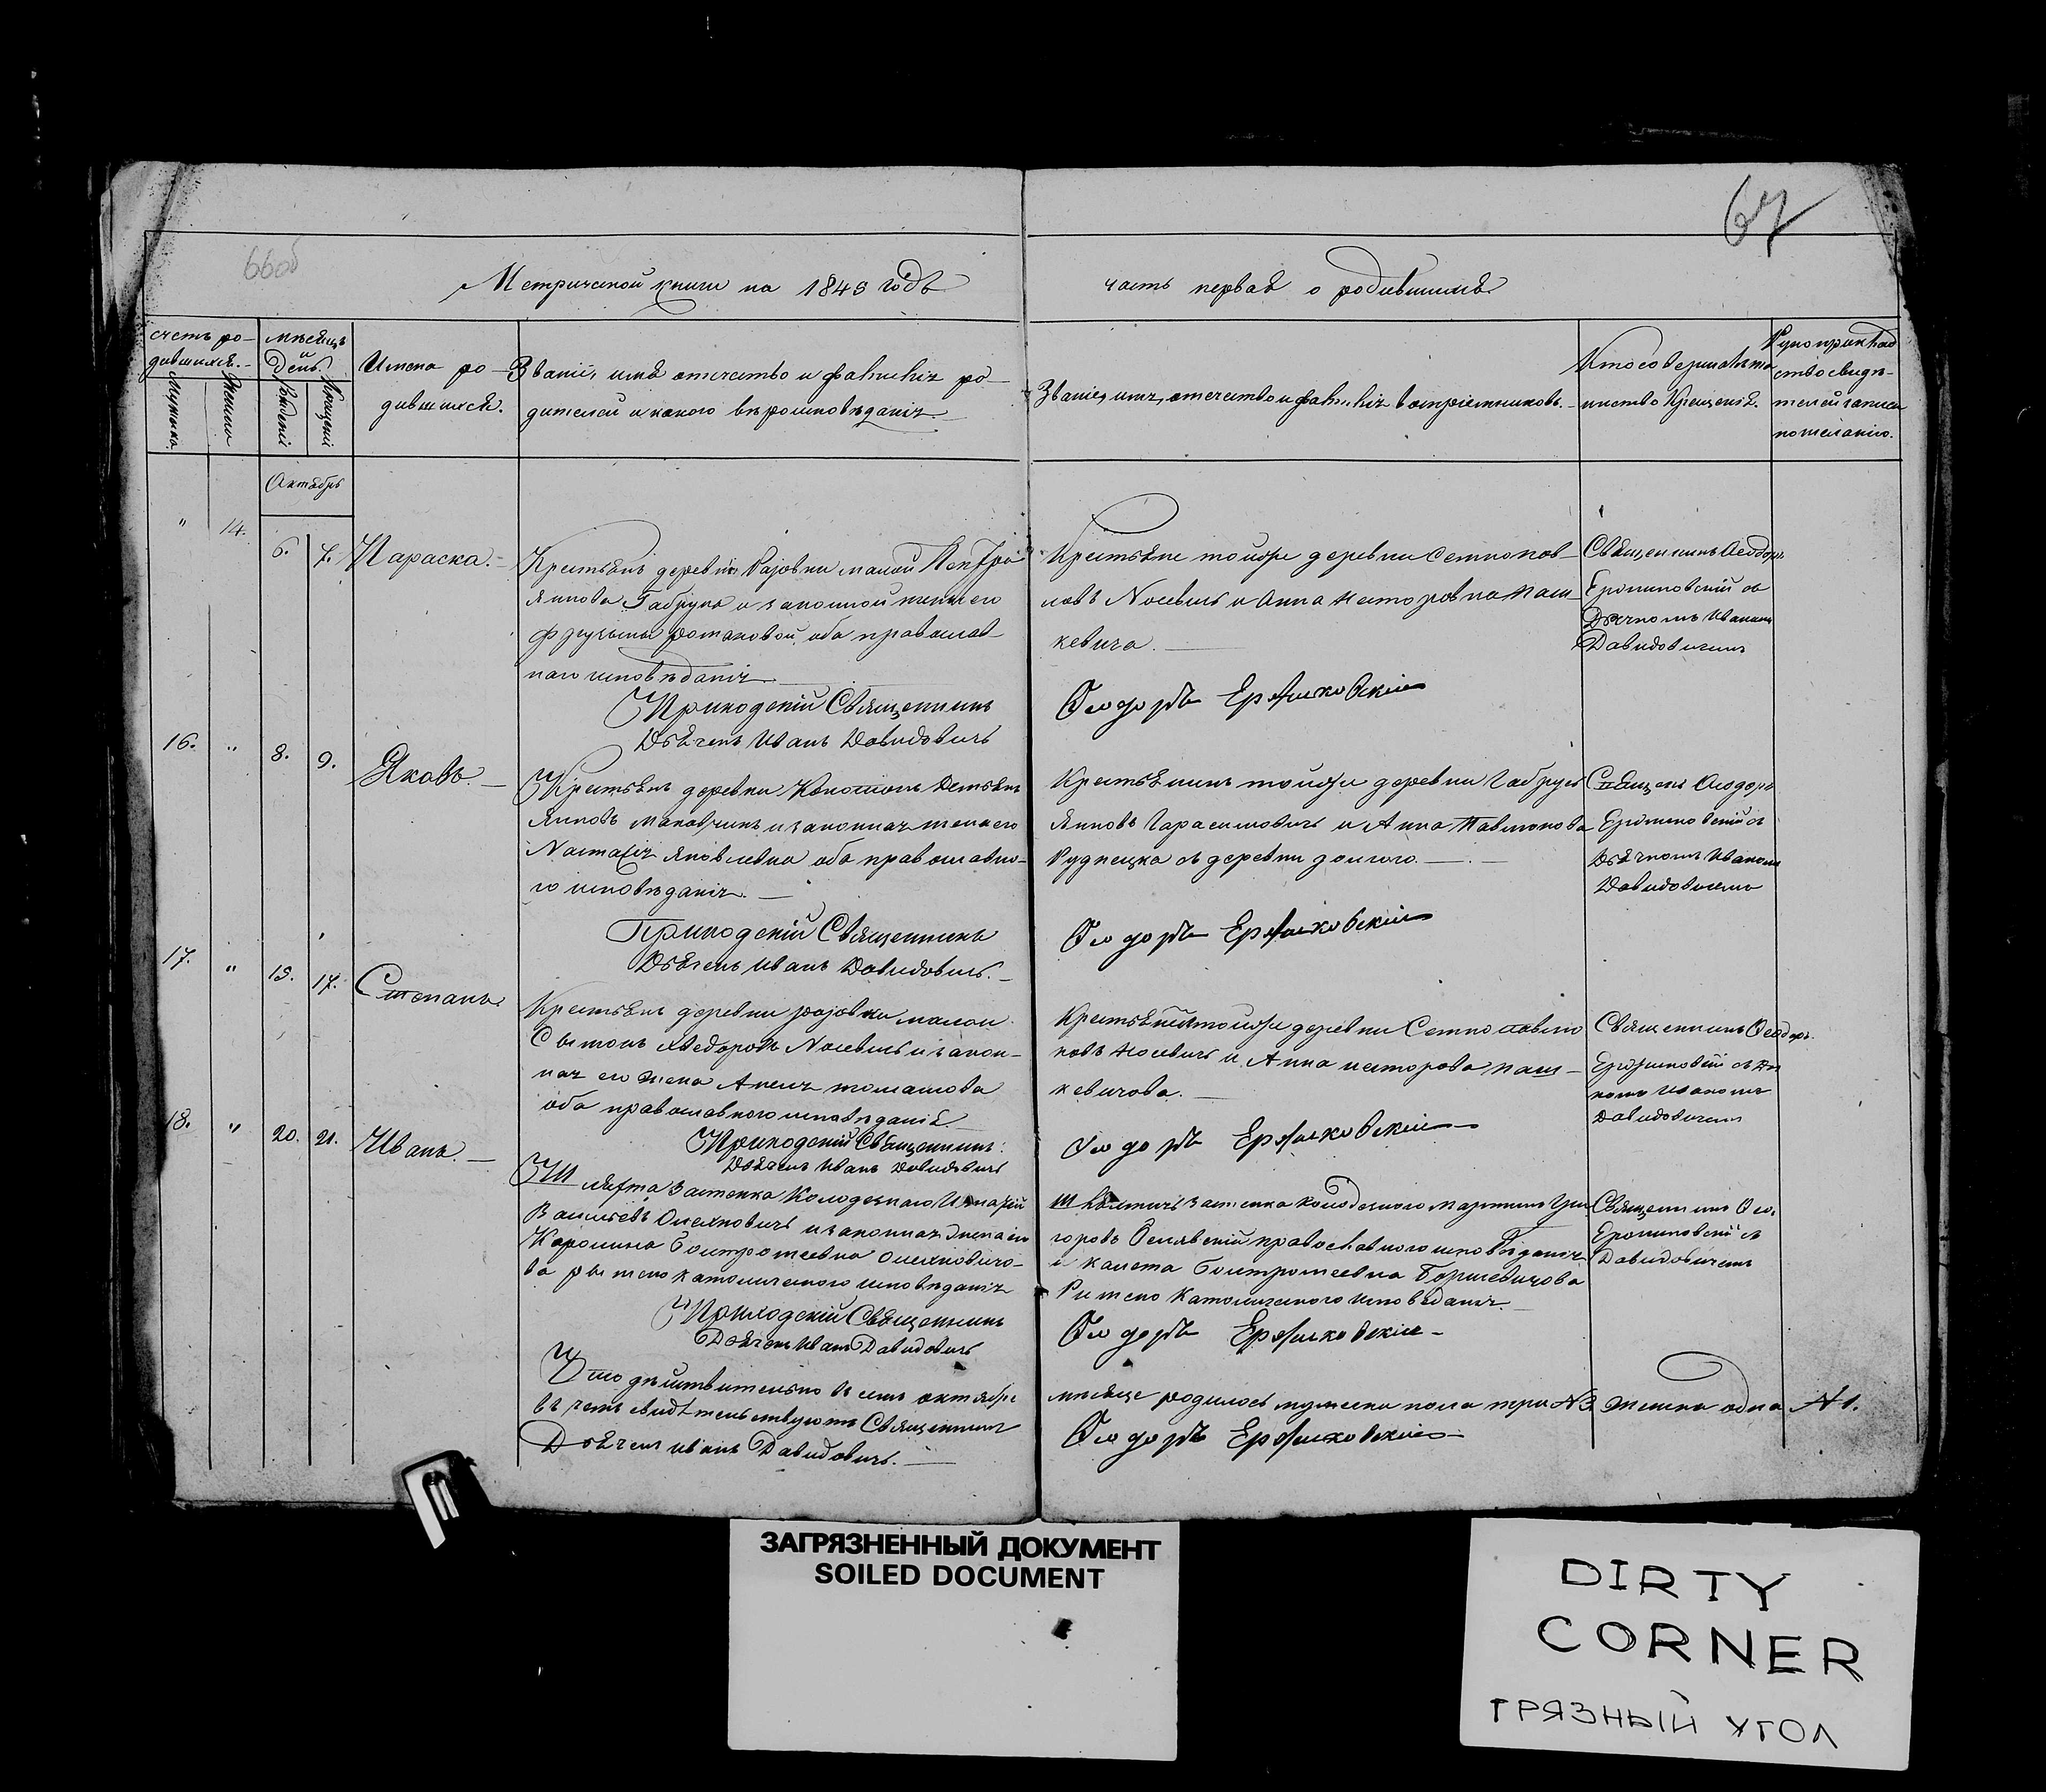 67
66об
Метрической книги на 1845 годъ
часть первая о родившихся
счетъ ро-
дившихся.
Мужска.
Женска
мѣсяцъ
и
День.
Рожденія
Крещенія
Имена ро-
дившихся.
Званіе, имя отечество и фамилія ро-
дителей и какого вѣроисповѣданія
Званіе, имя, отечество и фамилія воспріемниковъ.
Кто совершалъ та
инство Крещенія.
Рукоприклад
ство свидѣ-
телей записи
по желанію.
Октябрь
"
14.
6.
7.
Параска.
Крестьянъ деревни Раіовки малой
Яннова Габрука и законной жены его
романовой оба православ-
наго исповѣданія
Приходскій Священникъ
Дьячекъ Иванъ Давидовичъ
Крестьяне тойже деревни
ловъ Носевичъ и Анна Несторовна Паш-
кевича.
Ѳеодоръ Ержиковскій
Священникъ Ѳеодоръ
Ержиковскій съ
Дьячкомъ Иваномъ
Давидовичемъ
16.
"
8.
9.
Яковъ.
Крестьянъ деревни
Янновъ и законная жена его
Настасія Яковлевна оба православна-
го исповѣданія.
Приходскій Священникъ
Дьячекъ Иванъ Давидовичъ.
Крестьянинъ тойже деревни Габрусь
Янновъ Гарасимовичъ и Анна
Рудницка съ деревни долгого.
Ѳеодоръ Ержиковскій
Священ Ѳеодоръ
Ержиковскій съ
Дьячкомъ Иваномъ
Давидовичемъ
17.
"
15.
17.
Степанъ.
Крестьянъ деревни раіовки малой
Ѳведоровъ Носевичъ и закон-
ная его жена Анеля томашова
оба православного исповѣданія
Приходскій Священникъ
Дьячекъ Иванъ Давидовичъ
Крестьяне тойже деревни
новъ Носевичъ и Анна несторова паш-
кевичова.
Ѳеодоръ Ержиковскій
Священникъ Ѳеодоръ
Ержиковскій съ Дья
комъ Иваномъ
Давидовичемъ
18.
"
20.
21.
Иванъ.
Шляхта застенка Колодезнаго Игнацій
Васильевъ Олехновичъ и законная Жена его
Каролина Олехновичо-
ва римско католического исповѣданія
Приходскій Священникъ
Дьячекъ Иванъ Давидовичъ
Шляхтичъ застенка колодезного мартинъ Гри
горовъ православного исповѣданія
и
Римско Католического исповѣданія.
Ѳеодоръ Ержиковскій
Священникъ Ѳео.
Ержиковскій съ
Давидовичемъ
Что дѣйствительно въ семъ октябрѣ
мѣсяце родилось мужеска пола три №3 женска одна №1.
въ чемъ свидѣтельствуютъ Священникъ
Ѳеодоръ Ержиковскій
Дьячекъ Иванъ Давидовичъ.
ЗАГРЯЗНЕННЫЙ ДОКУМЕНТ
SOILED DOCUMENT
DIRTY
CORNER
ГРЯЗНЫЙ УГОЛ